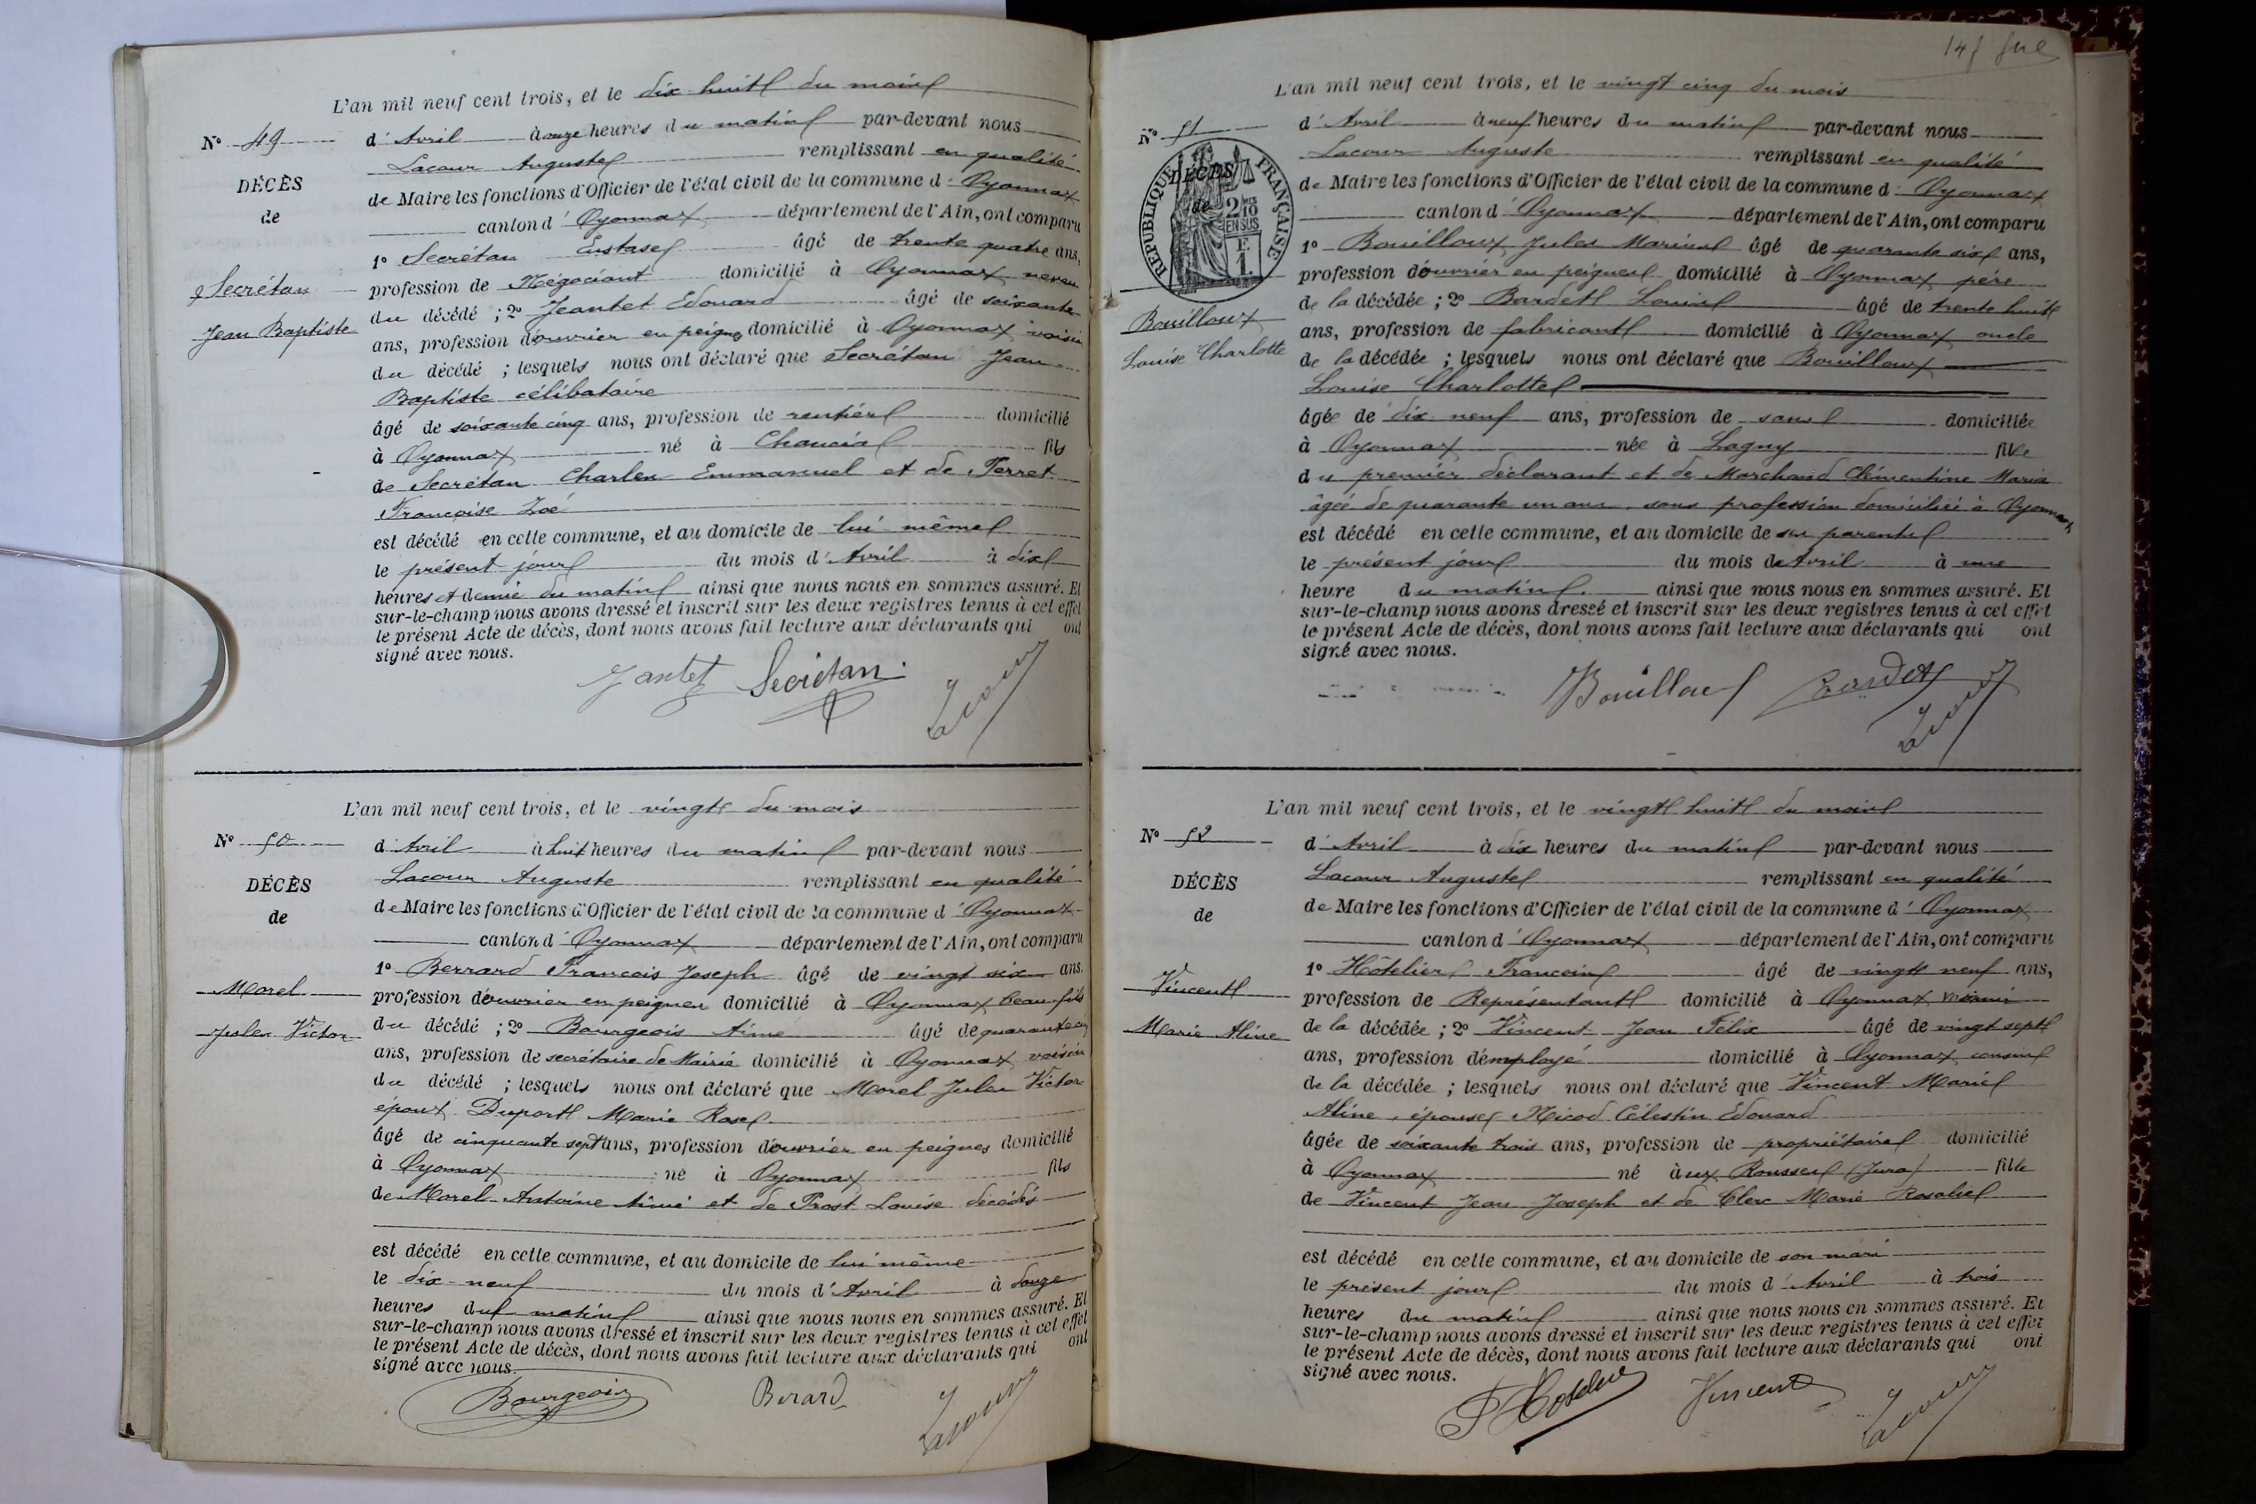 L'an mil neuf cent trois, et le dix huit du mois
N° 49
d'Avril à onze heures du matin par-devant nous
Lacour Auguste remplissant en qualité
DÉCÈS
de Maire les fonctions d'Officier de l'état civil de la commune d'Oyonnax
de
canton d'Oyonnax département de l'Ain, ont comparu
1° Secrétan Eustase âgé de trente quatre ans,
Secrétan
profession de Négociant domicilié à Oyonnax neveu
du décédé ; 2° Jeantet Edouard âgé de soixante
Jean Baptiste
ans, profession d'ouvrier en peignes domicilié à Oyonnax voisin
du décédé ; lesquels nous ont déclaré que Secrétan Jean
Baptiste célibataire
âgé de soixante cinq ans, profession de rentier domicilié
à Oyonnax né à Chancia fils
de Secrétan Charles Emmanuel et de Ferret
Françoise Zoé
est décédé en cette commune, et au domicile de lui même
le présent jour du mois d'Avril à dix
heures et demie du matin ainsi que nous nous en sommes assuré. Et
sur-le-champ nous avons dressé et inscrit sur les deux registres tenus à cet effet
le présent Acte de décès, dont nous avons fait lecture aux déclarants qui ont
signé avec nous.
Jantet Secrétan Lacour
L'an mil neuf cent trois, et le vingt du mois
N° 50
d'Avril à huit heures du matin par-devant nous
Lacour Auguste remplissant en qualité
DÉCÈS
de Maire les fonctions d'Officier de l'état civil de la commune d'Oyonnax
de
canton d'Oyonnax département de l'Ain, ont comparu
1° Berrard François Joseph âgé de vingt six ans
Morel
profession d'ouvrier en peignes domicilié à Oyonnax beau-fils
du décédé ; 2° Bourgeois Aimé âgé de quarante cinq
Jules Victor
ans, profession de secrétaire de Mairie domicilié à Oyonnax voisin
du décédé ; lesquels nous ont déclaré que Morel Jules Victor
époux Duport Marie Rose
âgé de cinquante sept ans, profession d'ouvrier en peignes domicilié
à Oyonnax né à Oyonnax fils
de Morel Antoine Aimé et de Prost Louise décédés
est décédé en cette commune, et au domicile de lui même
le dix-neuf du mois d'Avril à douze
heures du matin ainsi que nous nous en sommes assuré. Et
sur-le-champ nous avons dressé et inscrit sur les deux registres tenus à cet effet
le présent Acte de décès, dont nous avons fait lecture aux déclarants qui ont
signé avec nous.
Bourgeois Berard Lacour
L'an mil neuf cent trois, et le vingt cinq du mois
N° 51
d'Avril à neuf heures du matin par-devant nous
Lacour Auguste remplissant en qualité
DÉCÈS
de
RÉPUBLIQUE FRANÇAISE
2/10 EN SUS
F. 1.
de Maire les fonctions d'Officier de l'état civil de la commune d'Oyonnax
canton d'Oyonnax département de l'Ain, ont comparu
1° Bouilloux Jules Marius âgé de quarante six ans,
profession d'ouvrier en peignes domicilié à Oyonnax père
de la décédée ; 2° Bardet Louis âgé de trente huit
Bouilloux
ans, profession de fabricant domicilié à Oyonnax oncle
Louise Charlotte
de la décédée ; lesquels nous ont déclaré que Bouilloux
Louise Charlotte
âgée de dix neuf ans, profession de sans domiciliée
à Oyonnax née à Lagny fille
du premier déclarant et de Marchand Clémentine Maria
âgée de quarante un ans, sans profession domiciliée à Oyonnax
est décédé en cette commune, et au domicile de ses parents
le présent jour du mois d'Avril à une
heure du matin ainsi que nous nous en sommes assuré. Et
sur-le-champ nous avons dressé et inscrit sur les deux registres tenus à cet effet
le présent Acte de décès, dont nous avons fait lecture aux déclarants qui ont
signé avec nous.
Bouilloux Bardet Lacour
L'an mil neuf cent trois, et le vingt huit du mois
N° 52
d'Avril à dix heures du matin par-devant nous
Lacour Auguste remplissant en qualité
DÉCÈS
de Maire les fonctions d'Officier de l'état civil de la commune d'Oyonnax
de
canton d'Oyonnax département de l'Ain, ont comparu
1° Hôtelier François âgé de vingt neuf ans,
Vincent
profession de Représentant domicilié à Oyonnax voisin
Marie Aline
de la décédée ; 2° Vincent Jean Félix âgé de vingt sept
ans, profession d'employé domicilié à Oyonnax cousin
de la décédée ; lesquels nous ont déclaré que Vincent Marie
Aline, épouse Nicod Célestin Edouard
âgée de soixante trois ans, profession de propriétaire domicilié
à Oyonnax né aux Rousses (Jura) fille
de Vincent Jean Joseph et de Clerc Marie Rosalie
est décédé en cette commune, et au domicile de son mari
le présent jour du mois d'Avril à trois
heures du matin ainsi que nous nous en sommes assuré. Et
sur-le-champ nous avons dressé et inscrit sur les deux registres tenus à cet effet
le présent Acte de décès, dont nous avons fait lecture aux déclarants qui ont
signé avec nous.
Vincent Lacour